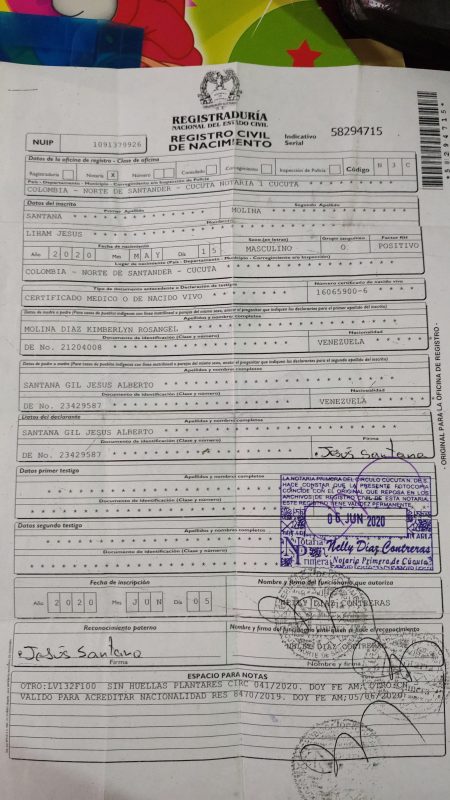 REGISTRADURÍA
NACIONAL DEL ESTADO CIVIL
REGISTRO CIVIL
DE NACIMIENTO
NUIP 1091379926
Indicativo Serial 58294715
*58294715*
Datos de la oficina de registro - Clase de oficina
Registraduría Notaría X Número Consulado Corregimiento Inspección de Policía Código N 3 C
País - Departamento - Municipio - Corregimiento e/o Inspección de Policía
COLOMBIA - NORTE DE SANTANDER - CUCUTA NOTARIA 1 CUCUTA * * * * * * * *
Datos del inscrito
Primer Apellido Segundo Apellido
SANTANA * * * * * * * * * * MOLINA * * * * * * * * * *
Nombre(s)
LIHAM JESUS * * * * * * * * * * * * * * * * * *
Fecha de nacimiento Sexo (en letras) Grupo sanguíneo Factor RH
Año 2 0 2 0 Mes M A Y Día 1 5 MASCULINO O POSITIVO
Lugar de nacimiento (País - Departamento - Municipio - Corregimiento e/o Inspección)
COLOMBIA - NORTE DE SANTANDER - CUCUTA * * * * * * * * * *
Tipo de documento antecedente o Declaración de testigos Número certificado de nacido vivo
CERTIFICADO MEDICO O DE NACIDO VIVO * * * 16065900-6 * * * *
Apellidos y nombres completos
MOLINA DIAZ KIMBERLYN ROSANGEL * * * * * * * * * *
Documento de identificación (Clase y número) Nacionalidad
DE No. 21204008 * * * * * * * * * * VENEZUELA * * * *
Apellidos y nombres completos
SANTANA GIL JESUS ALBERTO * * * * * * * * * *
Documento de identificación (Clase y número) Nacionalidad
DE No. 23429587 * * * * * * * * * * VENEZUELA * * * *
Datos del declarante
Apellidos y nombres completos
SANTANA GIL JESUS ALBERTO * * * * * * * * * *
Documento de identificación (Clase y número) Firma
DE No. 23429587 * * * * * * * * Jesús Santana
Datos primer testigo
Apellidos y nombres completos
Documento de identificación (Clase y número)
LA NOTARIA PRIMERA DEL CIRCULO CUCUTA N. DE S.
HACE CONSTAR QUE LA PRESENTE FOTOCOPIA
COINCIDE CON EL ORIGINAL QUE REPOSA EN LOS
ARCHIVOS DE REGISTRO CIVIL DE ESTA NOTARIA.
ESTE REGISTRO TIENE VALIDEZ PERMANENTE.
JUN 2020
Notaría Primera
Nelly Díaz Contreras
Notario Primero de Cúcuta
Datos segundo testigo
Apellidos y nombres completos
Documento de identificación (Clase y número)
Fecha de inscripción Nombre y firma del funcionario que autoriza
Año 2 0 2 0 Mes J U N Día 0 5 NELLY DIAZ CONTRERAS
Reconocimiento paterno Nombre y firma del funcionario ante quien se hace el reconocimiento
Jesús Santana
Firma
NELLY DIAZ CONTRERAS
Nombre y firma
ESPACIO PARA NOTAS
OTRO:LV132F100 SIN HUELLAS PLANTARES CIRC 041/2020. DOY FE AM; OTRO:
VALIDO PARA ACREDITAR NACIONALIDAD RES 8470/2019. DOY FE AM;05/06/2020
- ORIGINAL PARA LA OFICINA DE REGISTRO -